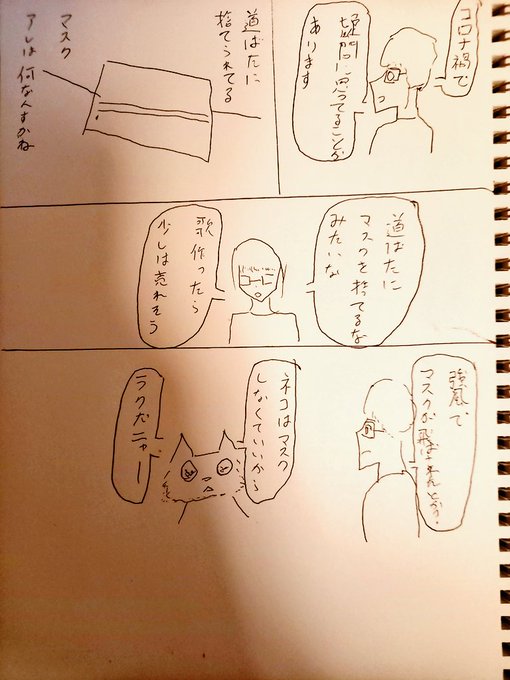 コロナ禍で
疑問に思ってることが
あります
道ばたに
捨てられてる
マスク
アレは何なんすかね
道ばたに
マスクを捨てるな
みたいな
歌作ったら
少しは売れそう
強風で
マスクが飛ばされんとか?
ネコはマスク
しなくていいから
ラクだニャー